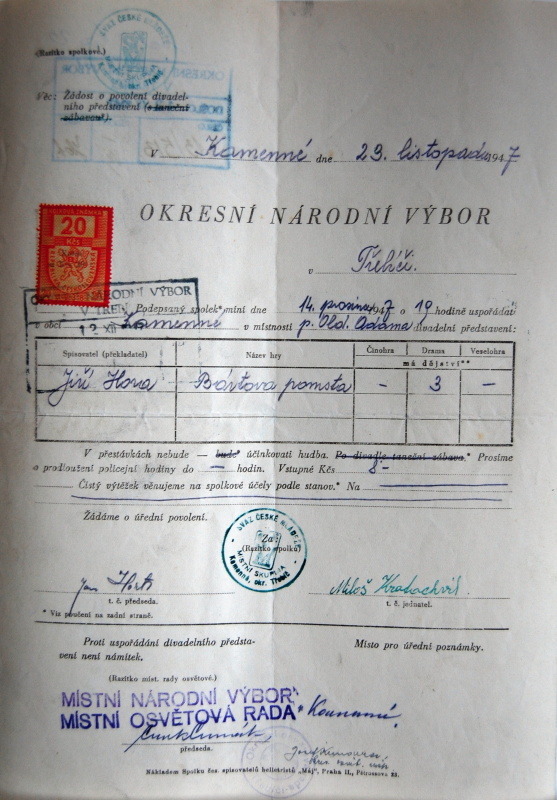 SVAZ ČESKÉ MLÁDEŽE
(Razítko spolkové.)
OKRESNÍ VÝBOR
Věc: Žádost o povolení divadel-
ního představení (s taneční
zábavou*).
V Kamenné dne 29. listopadu 1947
OKRESNÍ NÁRODNÍ VÝBOR
20
Kčs
v Třebíči.
NÁRODNÍ VÝBOR
V TŘEB
12 XII
Podepsaný spolek míní dne 14. prosince 1947 o 19 hodině uspořádat
v obci Kamenné v místnosti p. Old. Adama divadelní představení:
Spisovatel (překladatel) Název hry Činohra Drama Veselohra
má dějství**
Jiří Hora Bártova pomsta - 3 -
V přestávkách nebude — bude* účinkovati hudba. Po divadle taneční zábava.* Prosíme
o prodloužení policejní hodiny do — hodin. Vstupné Kčs 8-
Čistý výtěžek věnujeme na spolkové účely podle stanov.* Na
Žádáme o úřední povolení.
SVAZ ČESKÉ MLÁDEŽE
Za:
(Razítko spolku)
MÍSTNÍ SKUPINA
Kamenná, okr. Třebíč
Jan
Miloš Kratochvíl
t. č. předseda. t. č. jednatel.
* Viz poučení na zadní straně.
Proti uspořádání divadelního předsta-
vení není námitek.
Místo pro úřední poznámky.
(Razítko míst. rady osvětové.)
MÍSTNÍ NÁRODNÍ VÝBOR
MÍSTNÍ OSVĚTOVÁ RADA* Kamenné,
předseda.
Josef
Nákladem Spolku čes. spisovatelů beletristů „Máj", Praha II.,